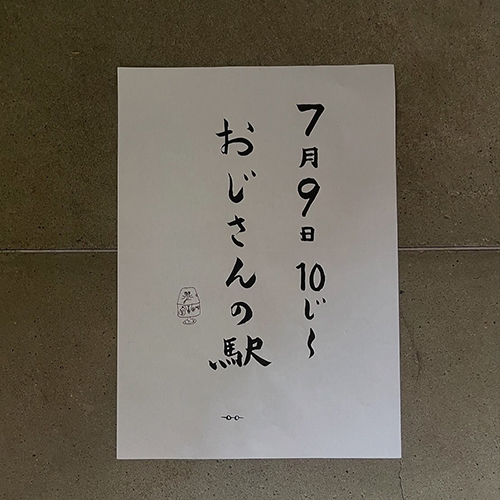 7月9日 10じ〜
おじさんの駅